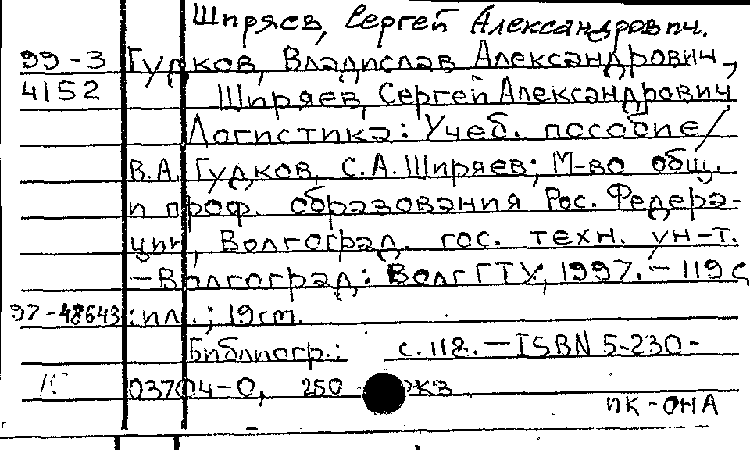 Ширяев, Сергей Александрович.
99-3 Гудков, Владислав Александрович,
4152 Ширяев, Сергей Александрович
Логистика: Учеб. пособие /
В.А. Гудков, С.А. Ширяев; М-во общ.
и проф. образования Рос. Федера-
ции, Волгоград. гос. техн. ун-т.
—Волгоград: ВолгГТУ, 1997.—119 с
97-48643 : ил.; 19 см.
Библиогр.: с. 118.—ISBN 5-230-
03704-0, 250
ПК-ОНА